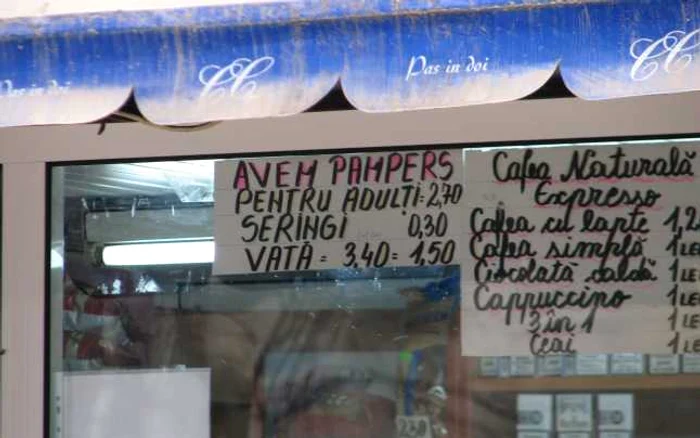 Pas in doi
CC
Pas in doi
CC
AVEM PAMPERS
PENTRU ADULȚI: 2,70
SERINGI 0,30
VATĂ = 3,40 = 1,50
Cafea Naturală
Expresso
Cafea cu lapte 1,2
Cafea simplă 1 LE
Ciocolată caldă 1 LE
Cappuccino 1 LE
3 în 1 1 LE
Ceai 1 LE